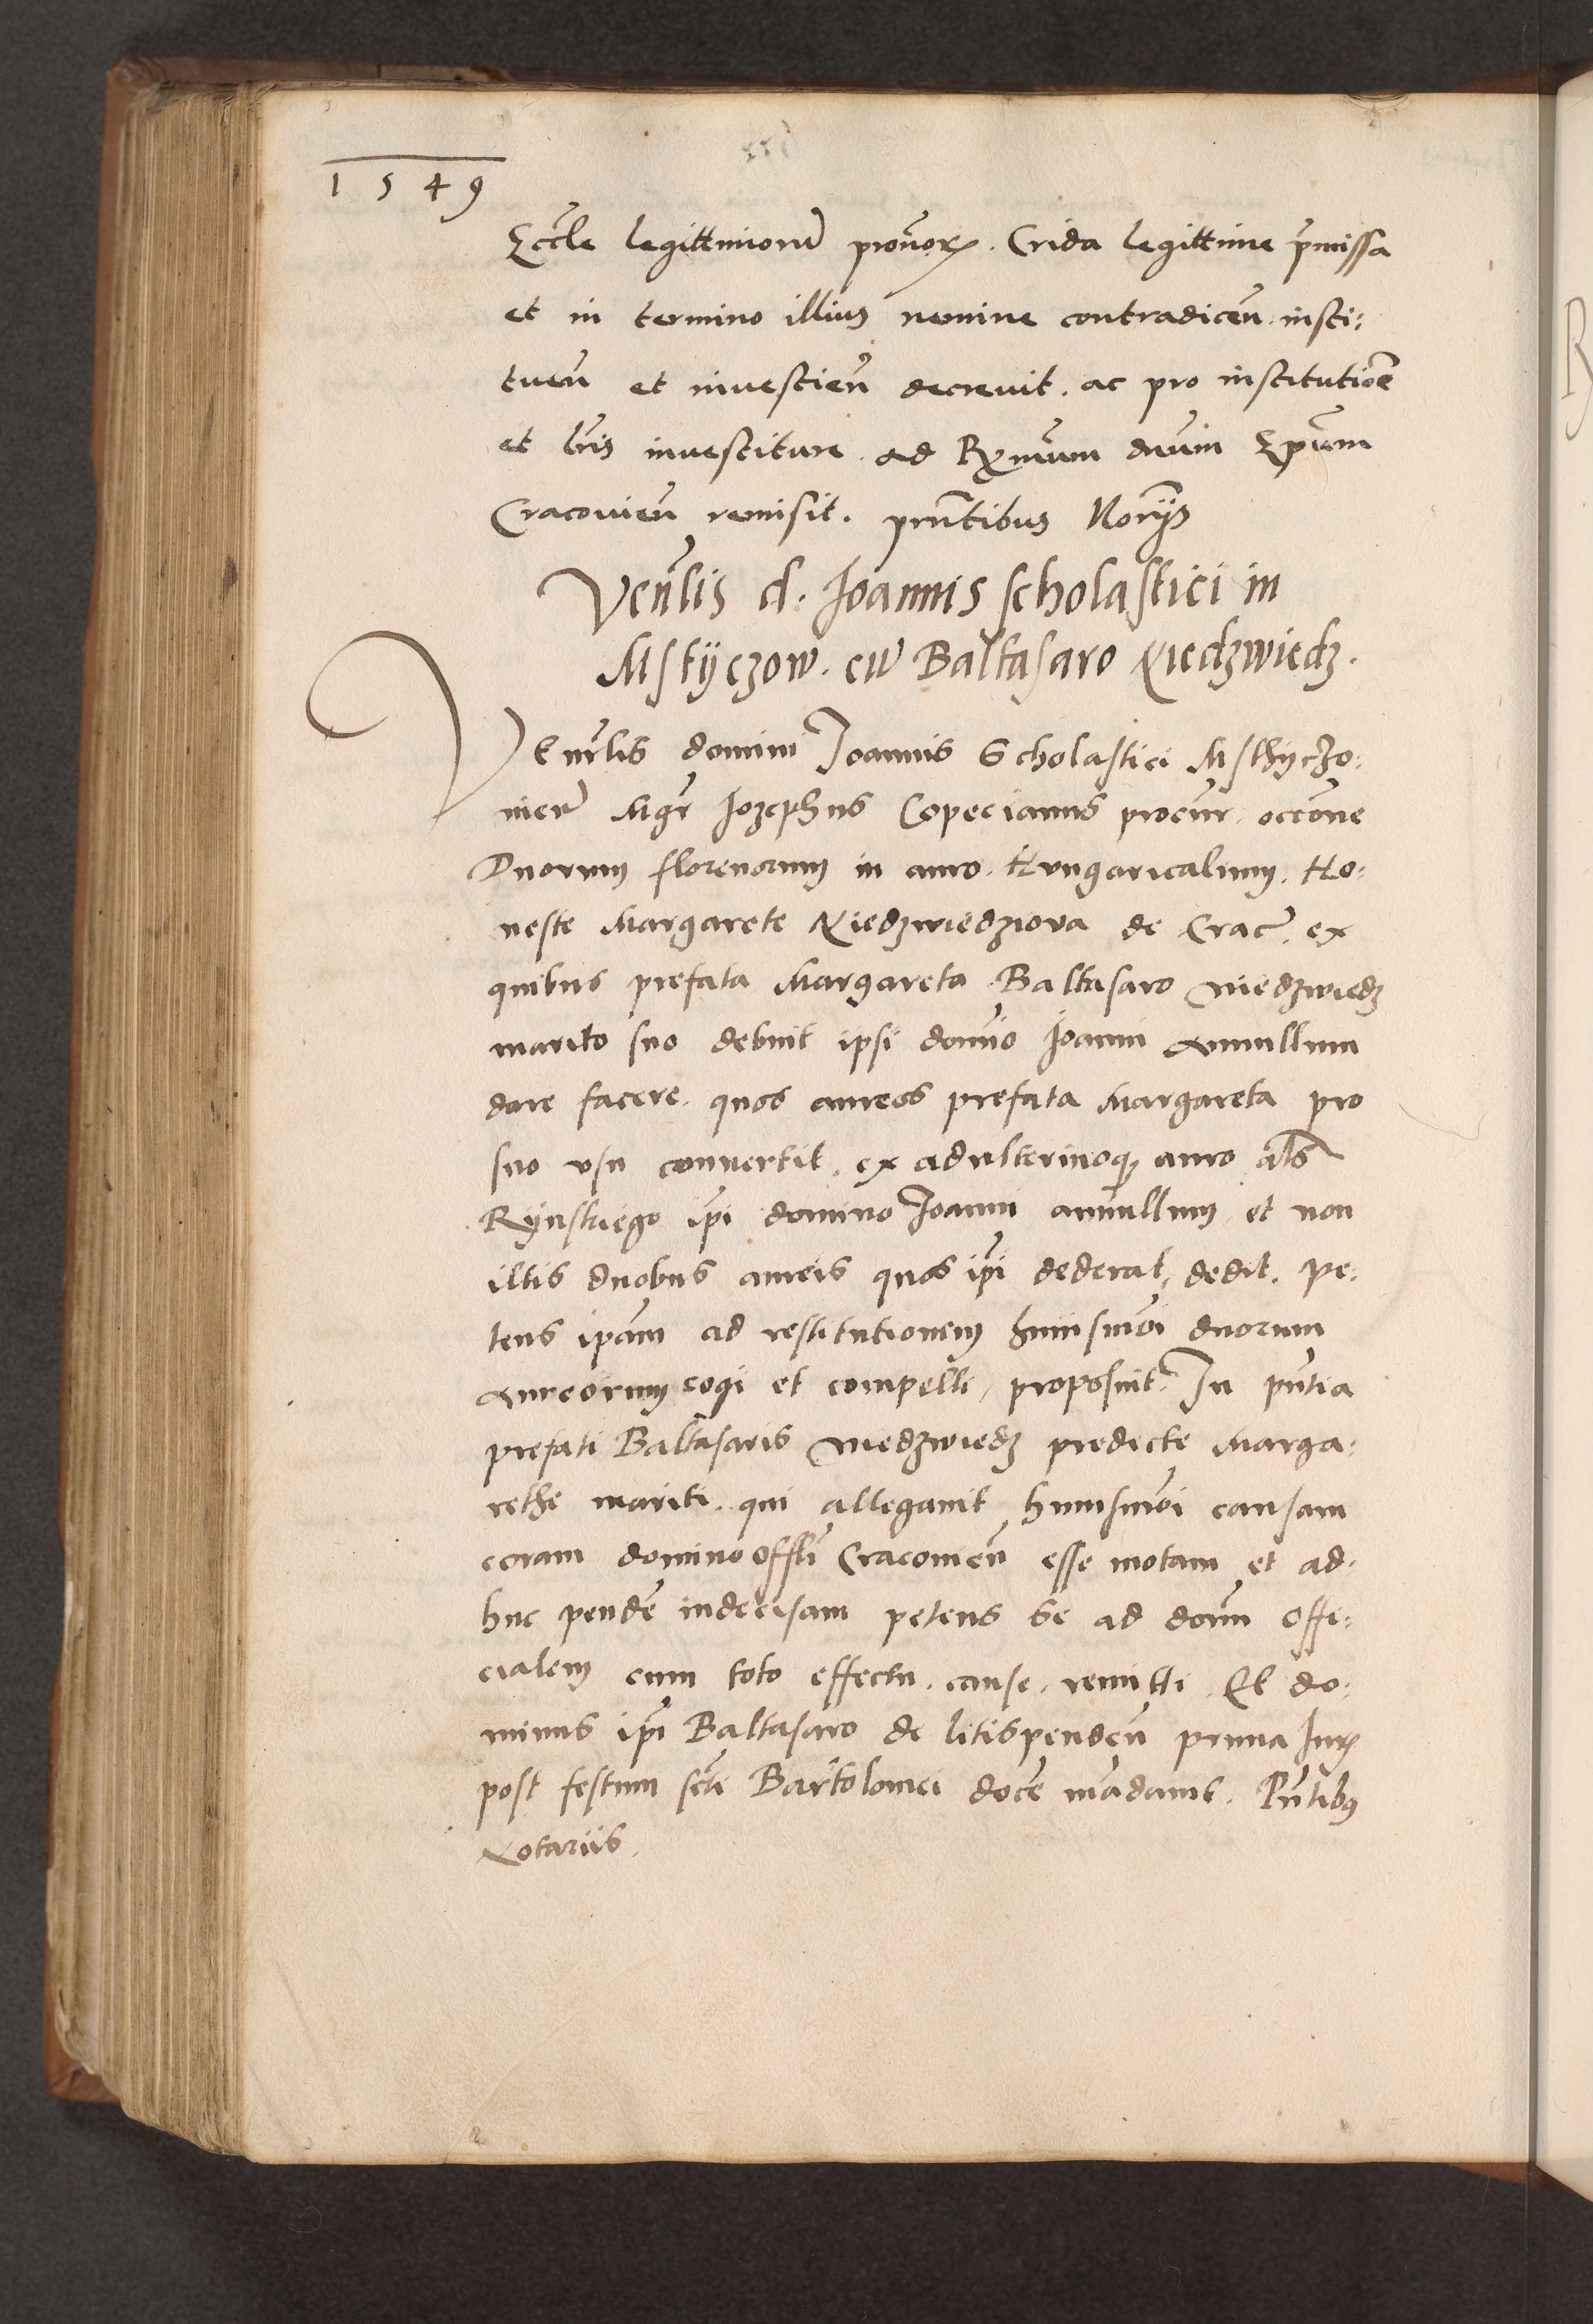 1549
Eccle legittimoru pronorz. Crida legittime pmissa
et in termino illius nemine contradicen. insti:
tuen et inuestien decreuit. ac pro institutioe
et lris inuestiture. ad Rxmum dnum Epum
Cracouien remisit. prntibus Norijs
Venlis d. Ioannis scholastici in
Mstijczow. cu Baltasaro Niedzwiedz.
Venrlis domini Ioannis Scholastici Msthyczo:
uien Mgr Iozephus Copecianus procur. occone
Duorum florenorum in auro. Hungaricalium. Ho:
neste Margarete Niedzwiedziova de Crac. ex
quibus prefata Margareta Baltasaro Niedzwiedz
marito suo debuit ipsi domio Joanni Annullum
dare facere. quos aureos prefata Margareta pro
suo vsu conuertit. ex adulterinoq auro als
Rijnskiego ipi domino Ioanni annullum et non
illis duobus aureis quos ipi dederat, dedit. Pe:
tens ipam ad restitutionem huiusmoi duorum
Aureorum cogi et compelli, proposuit. In pntia
prefati Baltasaris Niedzwiedz predicte Marga:
rethe mariti. qui allegauit huiusmoi causam
coram domino offli Cracouien esse motam et ad:
huc penden indecisam petens se ad donm Offi:
cialem cum toto effectu. cause. remitti. Et do:
minus ipi Baltasaro de litispenden prima Jurz
post festum scti Bartolomei doce madauit. Pntibus
Notariis.